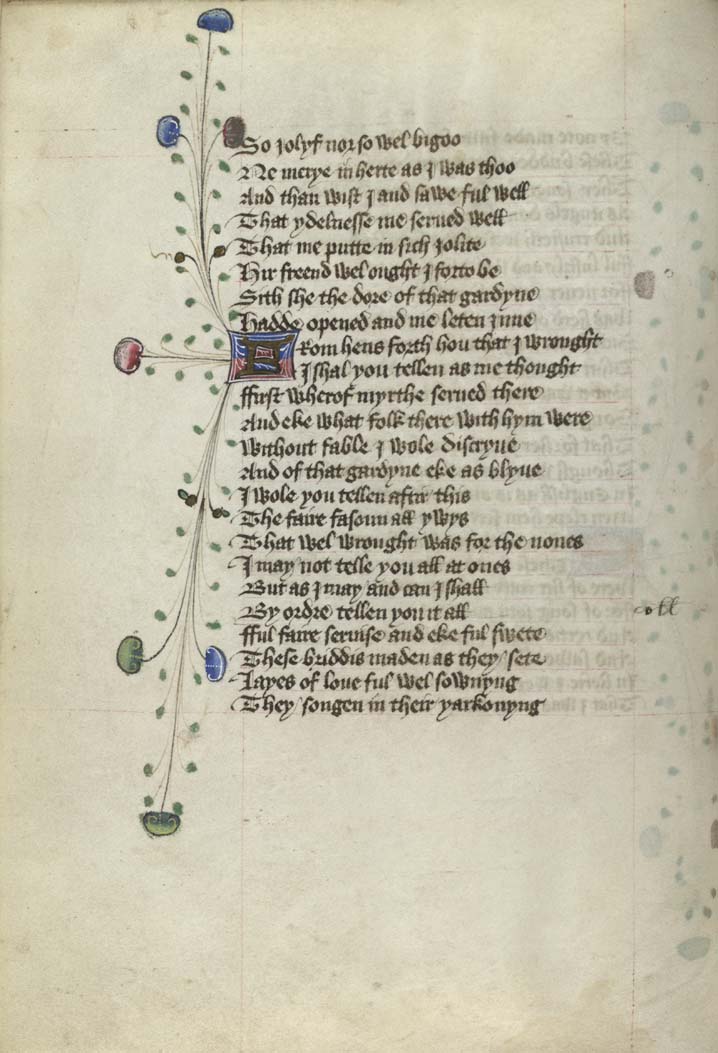 So jolyf nor so wel bigoo
Ne merye in herte as j was thoo
And than wist j and sawe ful well
That ydelnesse me serued well
That me putte in sich jolite
Hir freend wel ought j forto be
Sith she the dore of that gardyne
Hadde opened and me leten jnne
From hens forth hou that j wrought
I shal you tellen as me thought
ffirst wherof myrthe serued there
And eke what folk there with hym were
Without fable j wole discryue
And of that gardyne eke as blyue
I wole you tellen aftir this
The faire fasoun all ywys
That wel wrought was for the nones
I may not telle you all at ones
But as j may and can j shall
By ordre tellen you it all
fful faire seruise and eke ful swete
These briddis maden as they sete
Layes of loue ful wel sownyng
They songen in their yarkonyng